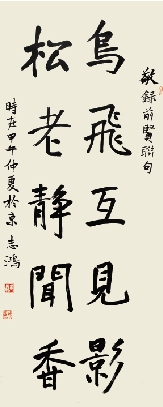 敬録前賢聯句
鳥飛互見影
松老靜聞香
時在甲午仲夏於京志鴻